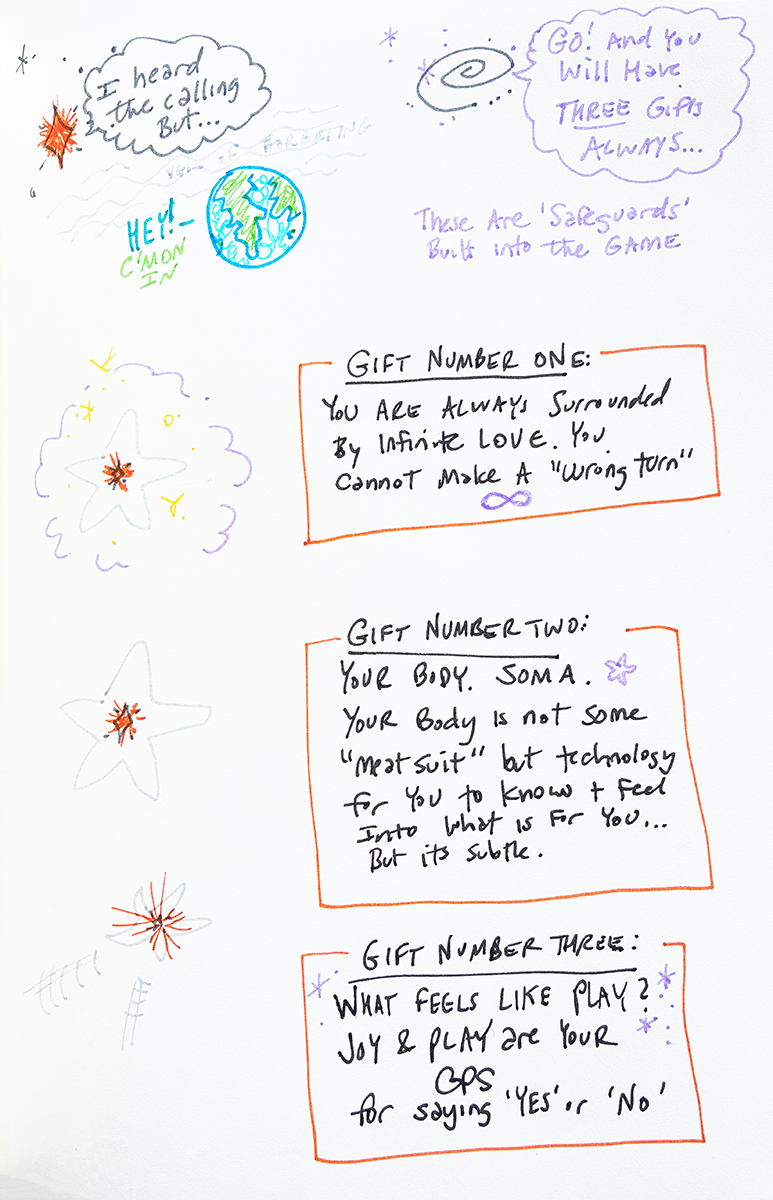 I heard
the calling
But...
GO! And You
Will Have
THREE Gifts
ALWAYS...
VEIL OF FORGETTING
HEY!
C'MON
IN
These Are 'Safeguards'
Built into the GAME
GIFT NUMBER ONE:
YOU ARE ALWAYS Surrounded
By Infinite LOVE. You
cannot Make A "wrong turn"
∞
GIFT NUMBER TWO:
YOUR BODY. SOMA.
YOUR Body is not some
"meat suit" but technology
for You to know + Feel
Into what is For You...
But its subtle.
GIFT NUMBER THREE:
WHAT FEELS LIKE PLAY?
JOY & PLAY are YOUR
GPS
for saying 'YES' or 'No'